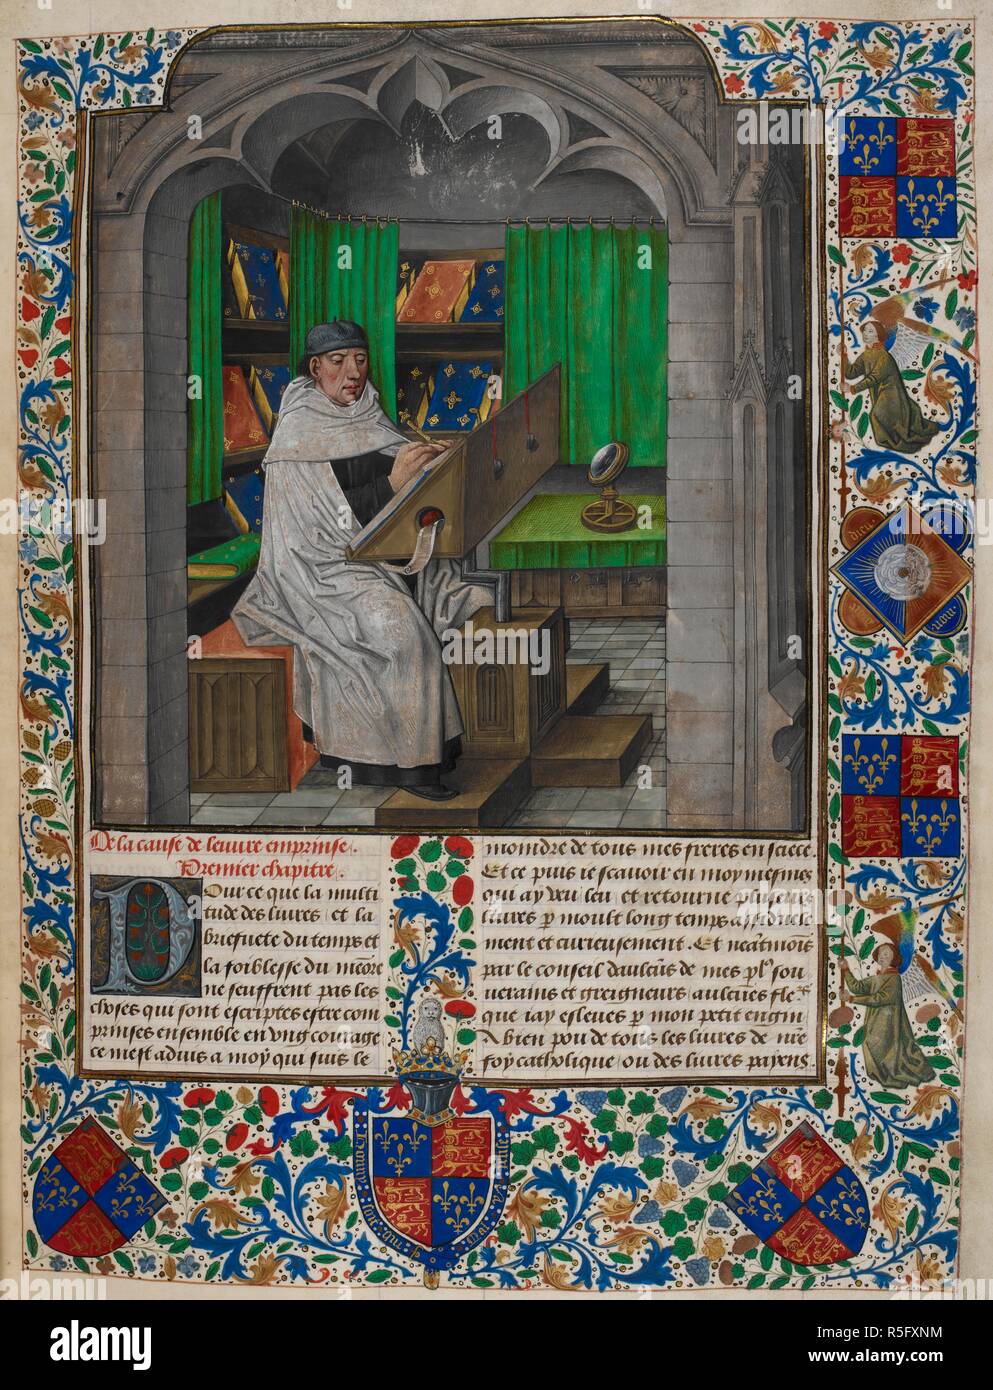 De la cause de leuvre emprinse.
Premier chapitre.
Pour ce que la multi
tude des livres et la
briefuete du temps et
la foiblesse du memore
ne seuffrent pas les
choses qui sont escriptes estre com
prinses ensemble en ung courage
ce mest aduis a moy qui suis le
moindre de tous mes freres en scièce
Et ce puis ie scavoir en moy mesmes
qui ay veu leu et retourne pluseurs
livres p moult long temps assiduele
ment et curieusement. Et neatmoins
par le conseil
de mes
sou
verains et greigneurs aulcúes fle
que iay esleues p mon petit engin
A bien pou de tous les livres de nre
foy catholique ou des livres payens
dieu
et
mon
alamy
a
alamy
alamy stock photo
R5FXNM
www.alamy.com